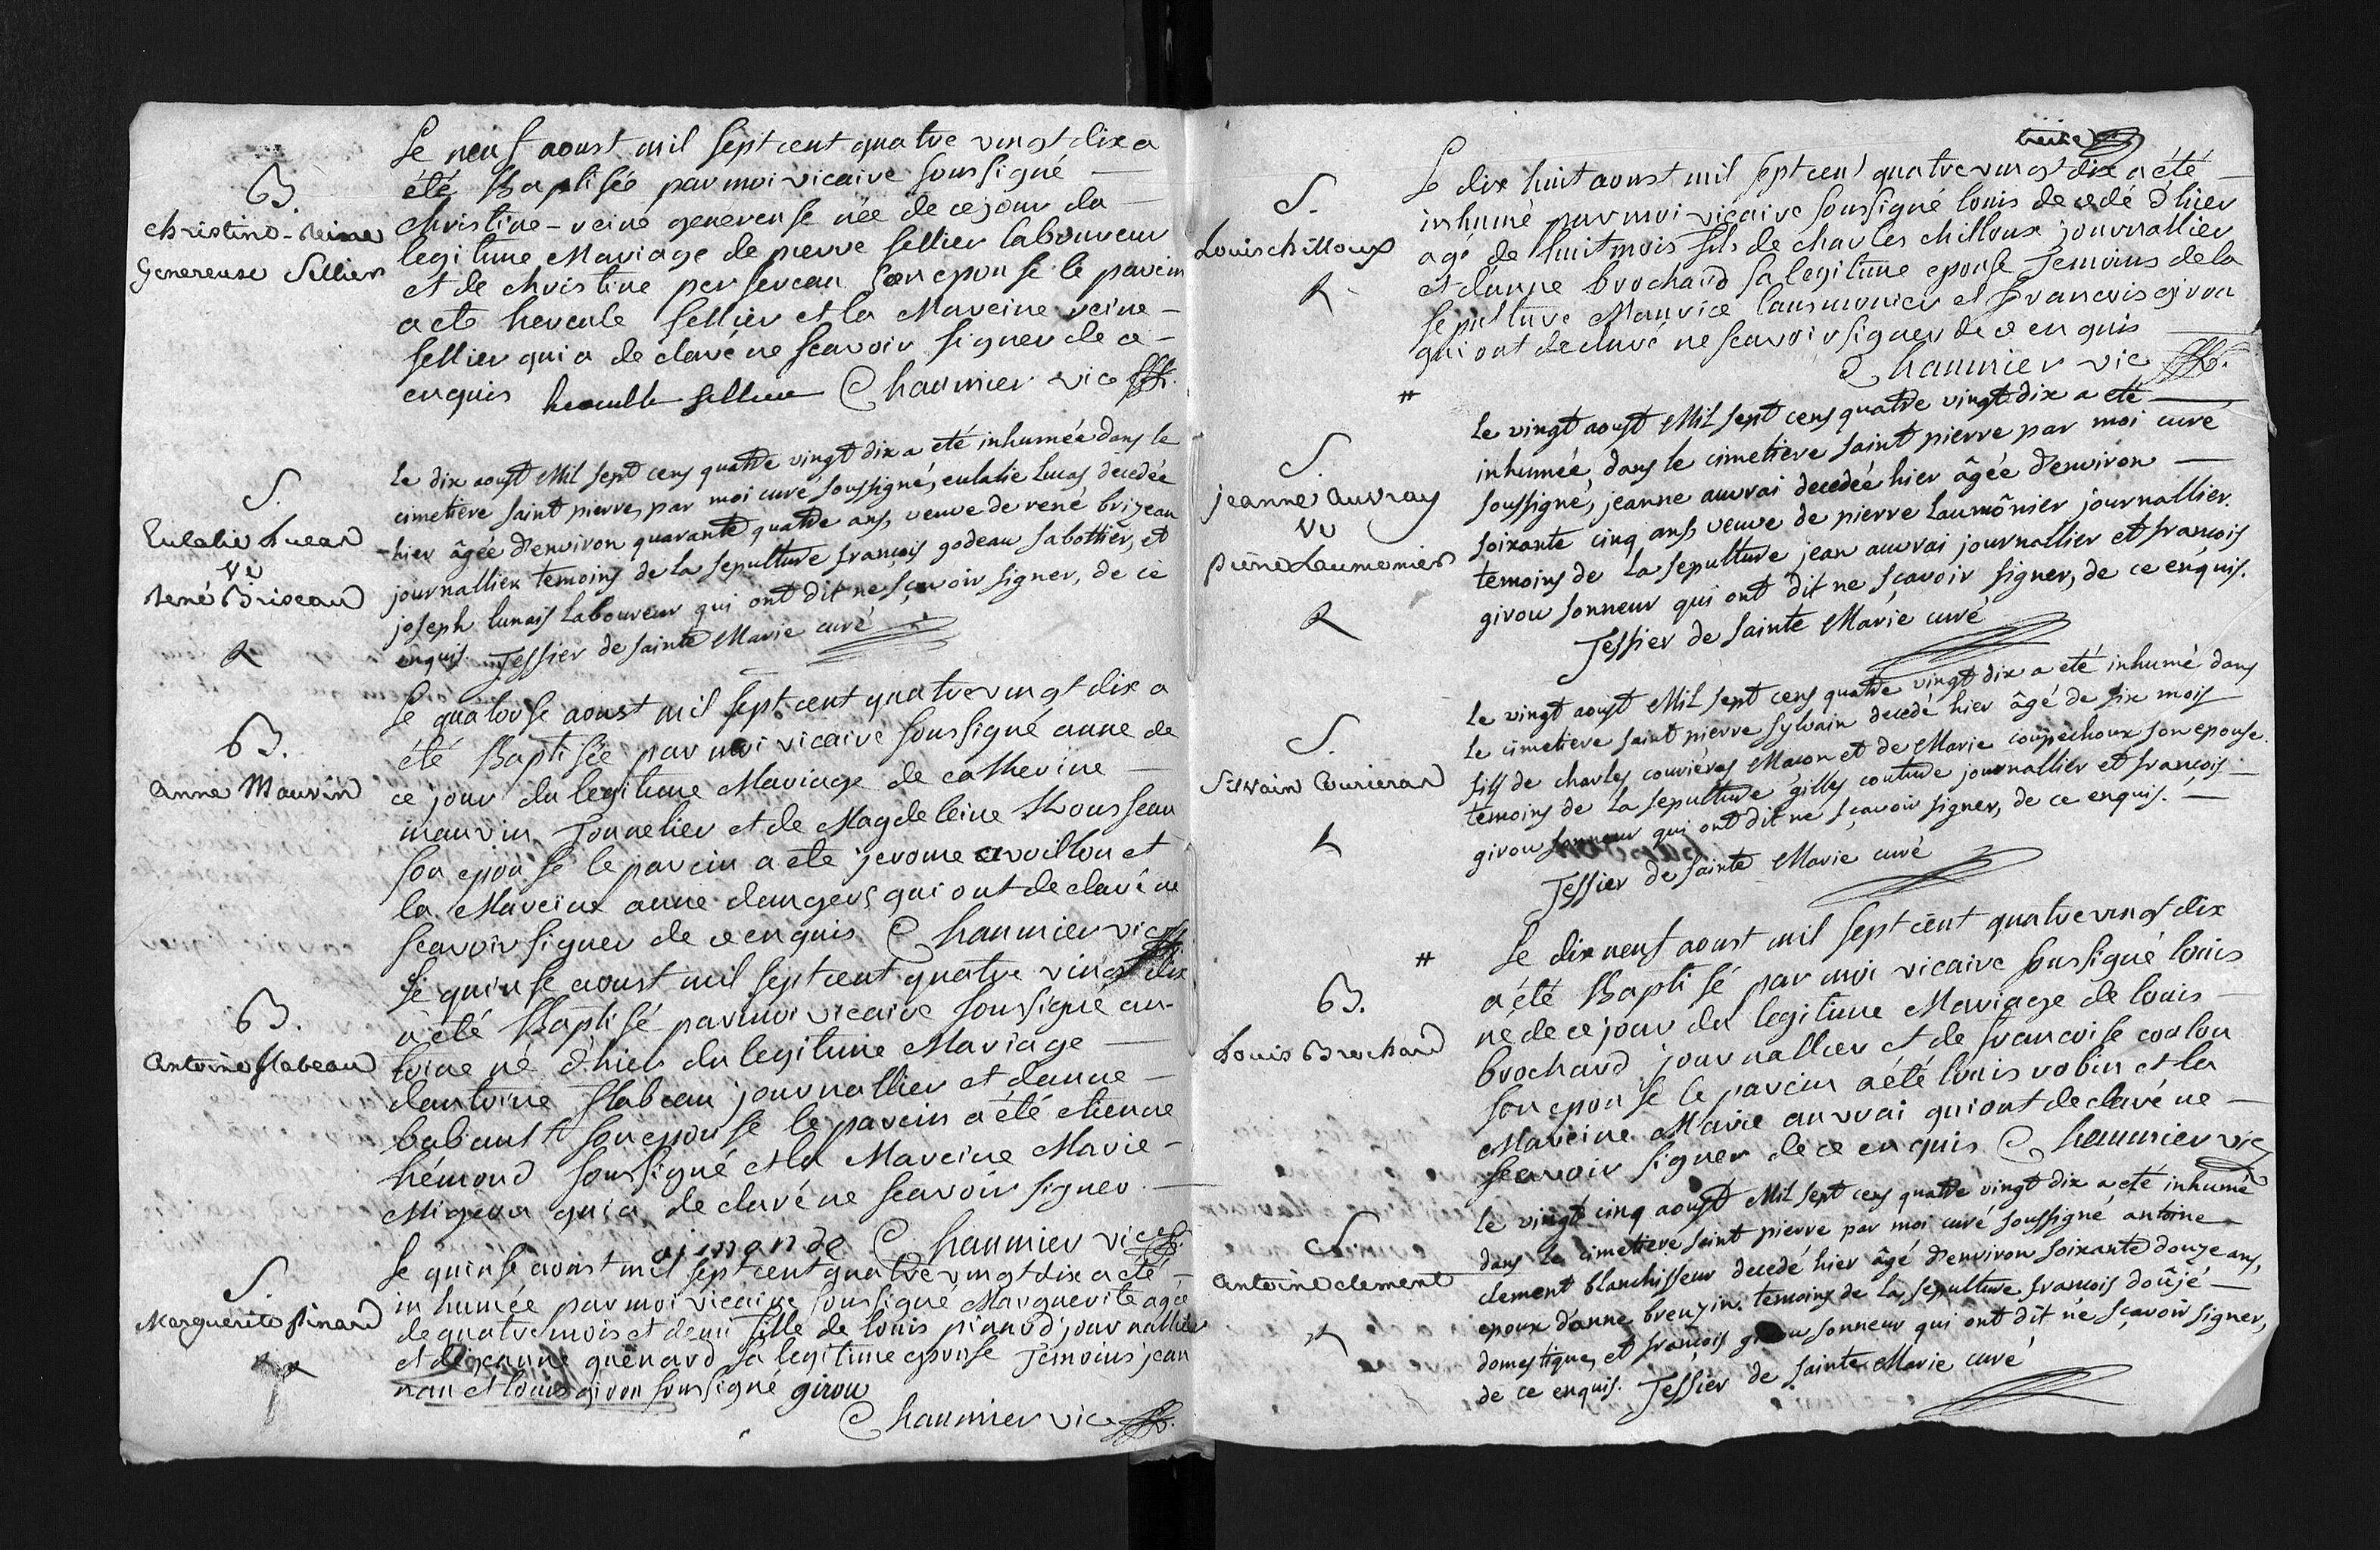 B.
christine-Reine
Genereuse Sellier
Le neuf aoust mil sept cent quatre vingt dix a
été Baptisée par moi vicaire soussigné
christine-reine genereuse née de ce jour du
legitime Mariage de pierre sellier laboureur
et de christine persereau son epouse le parein
a ete hercule sellier et la Mareine reine
sellier qui a declaré ne scavoir signer de ce
enquis hercule sellier Chaumier vic
S.
Eulalie Lucas
Ve
René Briseau
R
Le dix aoust Mil sept cens quatre vingt dix a eté inhumée dans le
cimetiere saint pierre, par moi curé soussigné, eulalie Lucas, decedée
hier âgée d'environ quarante quatre ans, veuve de rené brizeau
journallier temoins de la sepulture françois godeau sabottier, et
joseph lunais Laboureur qui ont dit ne sçavoir signer, de ce
enquis. Tessier de sainte Marie curé
B.
Anne Mauvin
Le quatorse aoust mil sept cent quatre vingt dix a
été Baptisée par moi vicaire soussigné anne de
ce jour du legitime Mariage de catherine
mauvin Tonnelier et de Magdeleine Rousseau
son epouse le parein a ete jerome avoillon et
la Mareine anne dangers qui ont declaré ne
scavoir signer de ce enquis Chaumier vic
B.
Antoine flabeau
Le quinse aoust mil sept cent quatre vingt dix
a été Baptisé par moi vicaire soussigné an-
toine né d'hier du legitime Mariage
dantoine flabeau journallier et danne
babault son epouse le parein a été etienne
hémond soussigné et la Mareine Marie
Migeon qui a declaré ne scavoir signer
aimonde Chaumier vic
S.
Marguerite Pinard
Le quinse aoust mil sept cent quatre vingt dix a eté
inhumée par moi vicaire soussigné Marguerite agée
de quatre mois et demi fille de louis pinard journallier
et de jeanne guenard sa legitime epouse Temoins jean
nau et louis girou soussigné girou
Chaumier vic
treize
S.
Louis chilloux
R
Le dix huit aoust mil sept cent quatre vingt dix a été
inhumé par moi vicaire soussigné louis decedé d'hier
agé de huit mois fils de charles chilloux journallier
et d'anne brochard sa legitime epouse Temoins de la
sepulture Maurice lausmonier et francois girou
qui ont declaré ne scavoir signer de ce enquis
Chaumier vic
#
S.
jeanne Auvray
Ve
pierre Laumonier
R
Le vingt aoust Mil sept cens quatre vingt dix a eté
inhumée, dans le cimetiere saint pierre par moi curé
soussigné, jeanne auvrai decedée hier âgée d'environ
soixante cinq ans, veuve de pierre Laumônier journallier.
temoins de La sepulture jean auvrai journallier et françois
girou sonneur qui ont dit ne sçavoir signer, de ce enquis.
Tessier de sainte Marie curé
S.
Silvain Courieras
R
Le vingt aoust Mil sept cens quatre vingt dix a eté inhumé dans
Le cimetiere saint pierre sylvain decedé hier âgé de six mois
fils de charles couriéras Macon et de Marie coupechoux son epouse.
temoins de La sepulture gilles couture journallier et françois
girou sonneur qui ont dit ne sçavoir signer, de ce enquis.
Tessier de sainte Marie curé
#
B.
Louis Brochard
Le dix neuf aoust mil sept cent quatre vingt dix
a été Baptisé par moi vicaire soussigné louis
né de ce jour du legitime Mariage de louis
brochard journallier et de francoise coulon
son epouse le parein a été louis robin et la
Mareine Marie auvrai qui ont declaré ne
scavoir signer de ce enquis Chaumier vic
S.
Antoine clement
Le vingt cinq aoust Mil sept cens quatre vingt dix a eté inhumé
dans le cimetiere saint pierre par moi curé soussigné antoine
clement blanchisseur decedé hier âgé d'environ soixante douze ans,
epoux d'anne breuzin. temoins de La sepulture francois doûjé
domestique, et françois girou sonneur qui ont dit ne sçavoir signer,
de ce enquis. Tessier de sainte Marie curé